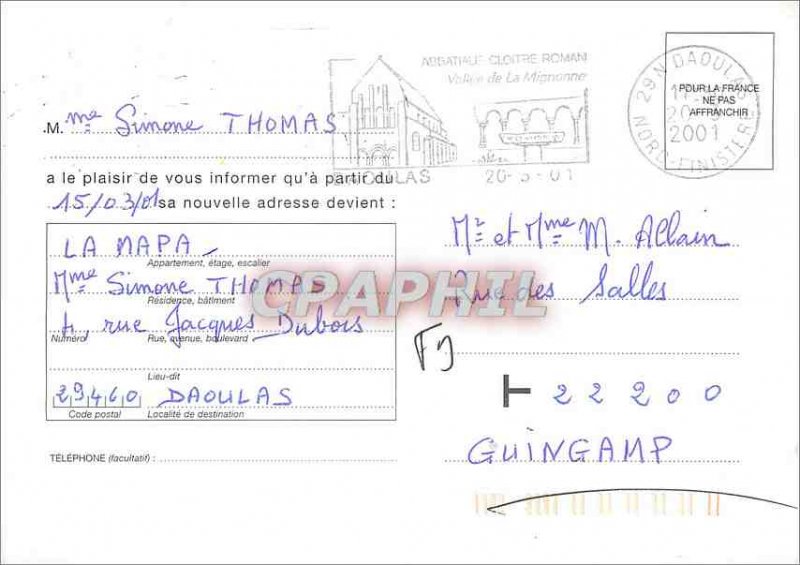 ABBATIALE CLOITRE ROMAN
Vallée de La Mignonne
DAOULAS 20-3-01
29 N DAOULAS
20
2001
NORD-FINISTERE
POUR LA FRANCE
NE PAS
AFFRANCHIR
M. me Simone THOMAS
a le plaisir de vous informer qu'à partir du
15/03/01 sa nouvelle adresse devient :
LA MAPA
Appartement, étage, escalier
Mme Simone THOMAS
Résidence, bâtiment
4, rue Jacques Dubois
Numéro Rue, avenue, boulevard
Lieu-dit
29460 DAOULAS
Code postal Localité de destination
TÉLÉPHONE (facultatif) :
Mr et Mme M. Allain
Rue des Salles
22200
GUINGAMP
CPAPHIL